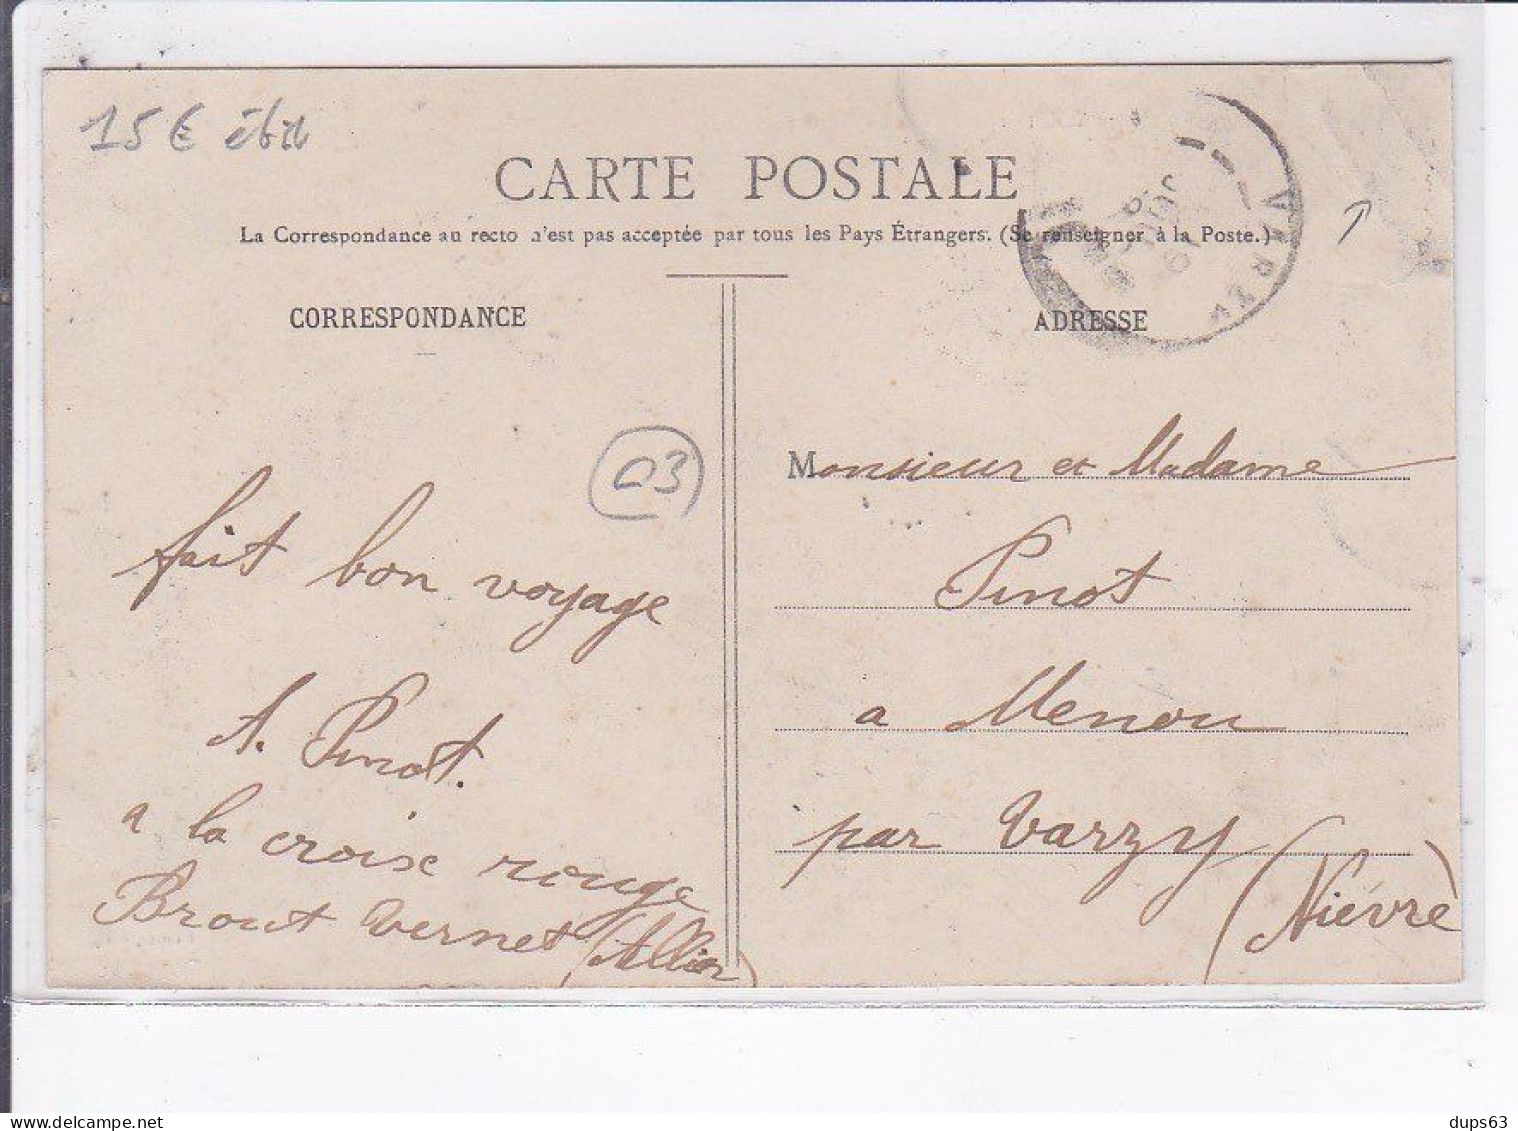 15€
CARTE POSTALE
La Correspondance au recto n'est pas acceptée par tous les Pays Étrangers. (Se renseigner à la Poste.)
CORRESPONDANCE
ADRESSE
VARZY
03
fait bon voyage
A. Pinot.
a la croix rouge
Brout Vernet (Allier)
Monsieur et Madame
Pinot
a Menou
par Varzy
(Nièvre)
delcampe.net
dups63